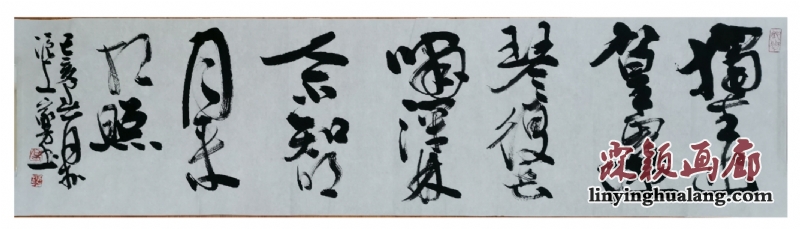 獨坐幽
篁裏彈
琴復长
嘯深林
人不知明
月来
相照
己亥
滬上
霖颖画廊
linyinghualang.com